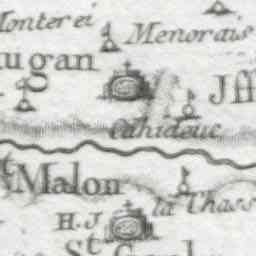 Monterei
Menorais
ugan
Jff
Cahideuc
t Malon
la Thass
H.J
St